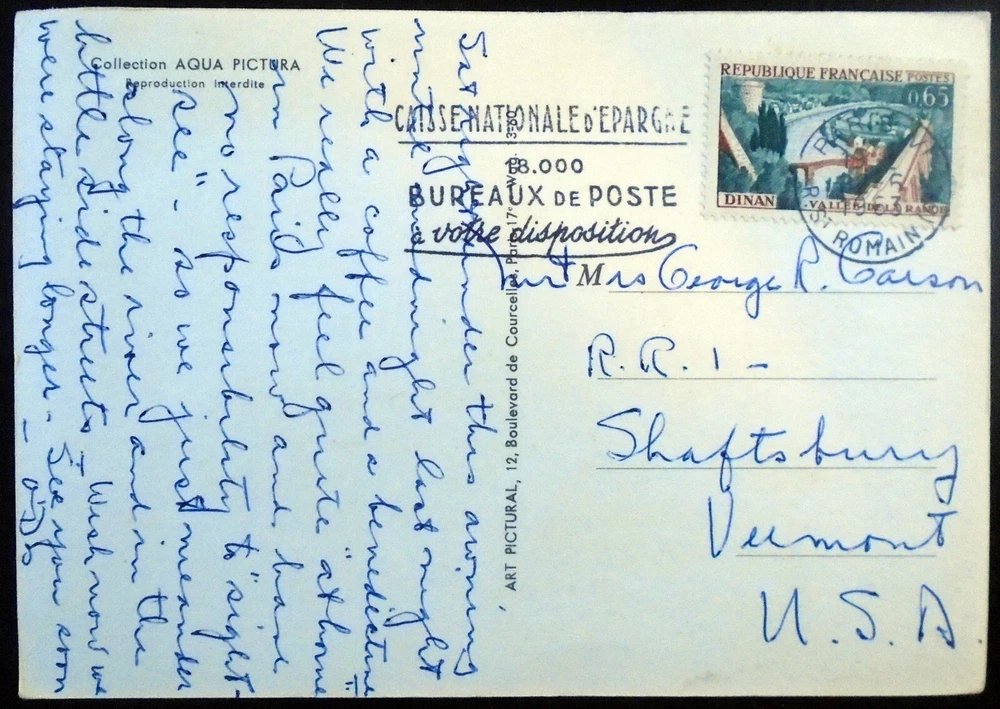 Collection AQUA PICTURA
Reproduction Interdite
CAISSE NATIONALE D'EPARGNE
18.000
BUREAUX DE POSTE
à votre disposition
REPUBLIQUE FRANÇAISE POSTES
0,65
DINAN - VALLÉE DE LA RANCE
PARIS V
R. ST ROMAIN
1963
Sat right under this awning
until midnight last night
with a coffee and a benedictine
We really feel quite "at home"
in Paris now and have
no responsibility to "sight-
see" - so we just meander
along the river and in the
little side streets - Wish now we
were staying longer - See you soon
ART PICTURAL, 12, Boulevard de Courcelles, Paris 17e - Wag. 13-60
Mr + Mrs George R. Carson
R.R. 1 -
Shaftsbury
Vermont
U.S.A.